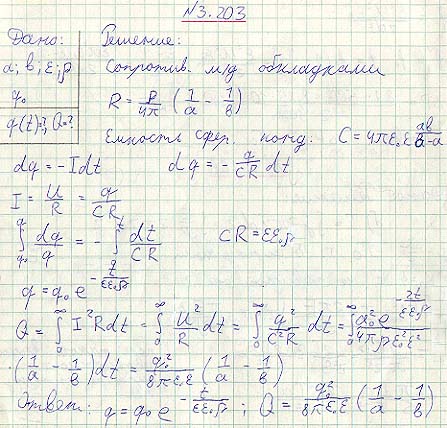 №3.203
Дано: Решение:
a; b; ε; ρ Сопротив. м/д обкладками
q₀ R = ρ/4π (1/a − 1/b)
q(t)=?; Q=? Емкость сфер. конд. C = 4πε₀ε ab/b−a
dq = −Idt dq = − q/CR dt
I = U/R = q/CR
∫_{q₀}^{q} dq/q = − ∫_{0}^{t} dt/CR CR = εε₀ρ
q = q₀ e^{− t/εε₀ρ}
Q = ∫_{0}^{∞} I²Rdt = ∫_{0}^{∞} U²/R dt = ∫_{0}^{∞} q²/C²R dt = ∫_{0}^{∞} q₀² e^{− 2t/εε₀ρ}/4πρε₀²ε² ·
·(1/a − 1/b)dt = q₀²/8πε₀ε (1/a − 1/b)
Ответ: q = q₀ e^{− t/εε₀ρ}; Q = q₀²/8πε₀ε (1/a − 1/b)